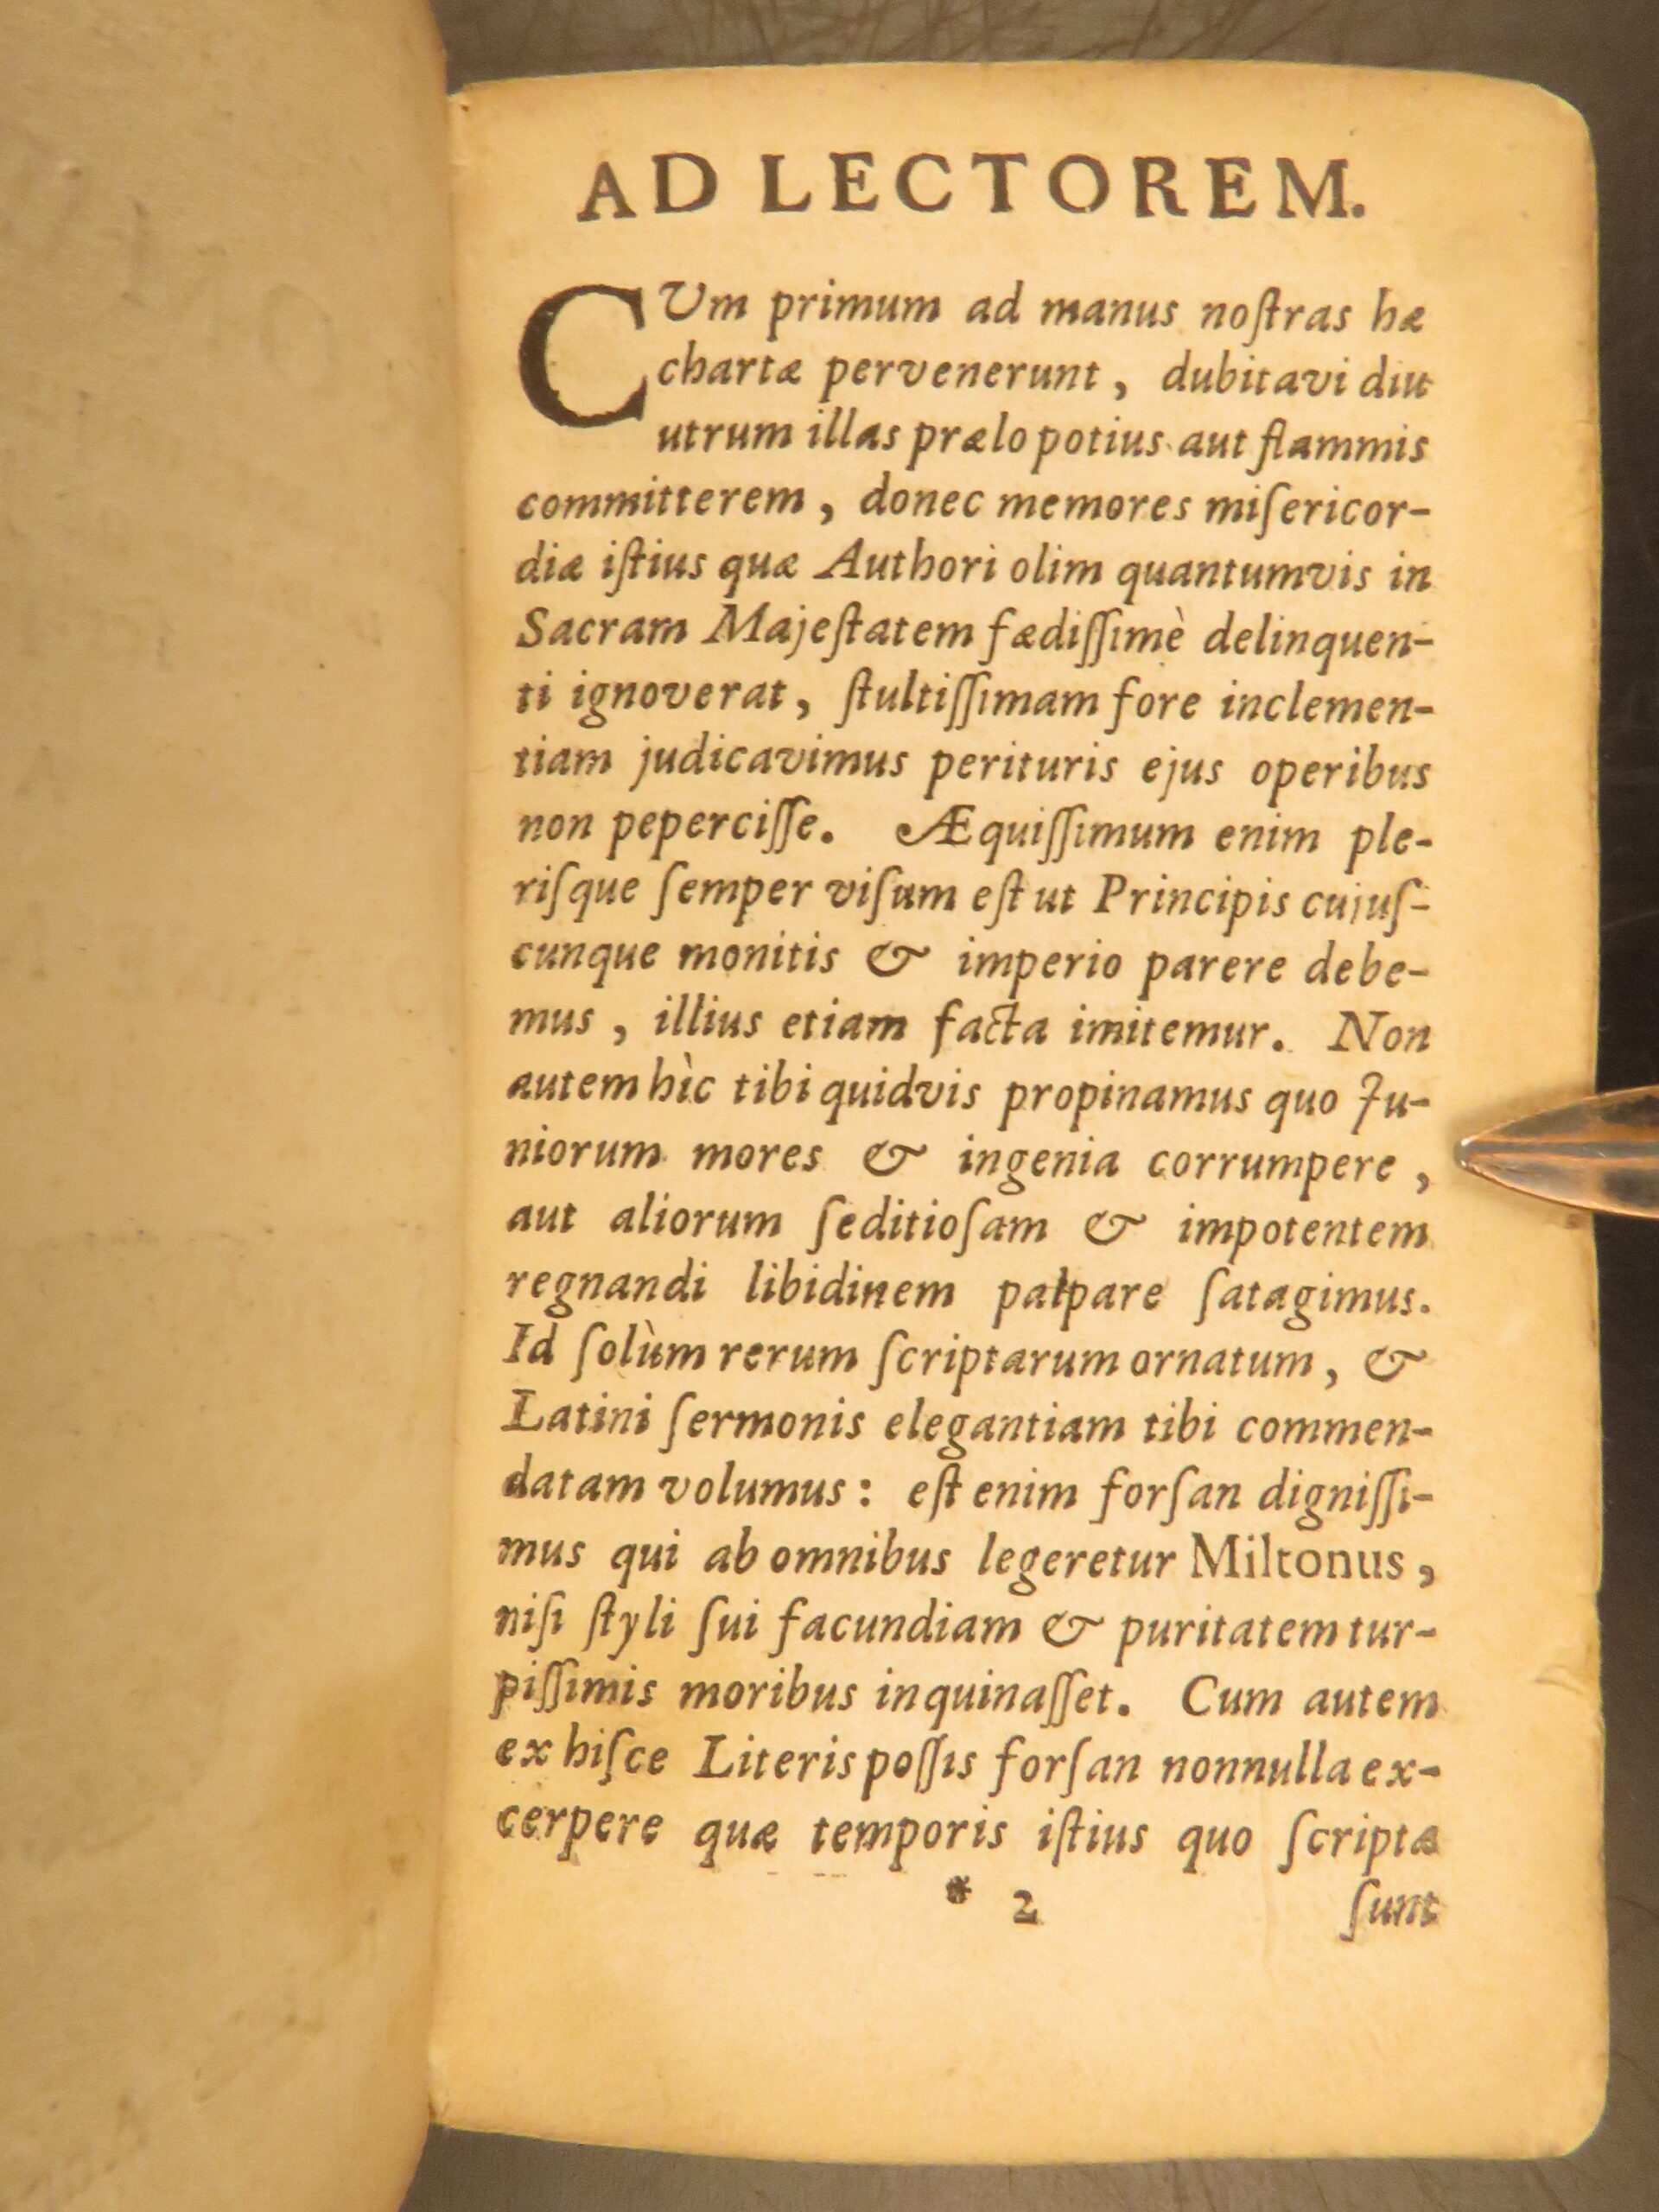 AD LECTOREM.
CUm primum ad manus noſtras hæ
chartæ pervenerunt, dubitavi diu
utrum illas prælo potius aut flammis
committerem, donec memores miſericor-
diæ iſtius quæ Authori olim quantumvis in
Sacram Majeſtatem fædiſſimè delinquen-
ti ignoverat, ſtultiſſimam fore inclemen-
tiam judicavimus perituris ejus operibus
non peperciſſe. Æquiſſimum enim ple-
riſque ſemper viſum eſt ut Principis cujuſ-
cunque monitis & imperio parere debe-
mus, illius etiam facta imitemur. Non
autem hìc tibi quidvis propinamus quo Ju-
niorum mores & ingenia corrumpere,
aut aliorum ſeditioſam & impotentem
regnandi libidinem palpare ſatagimus.
Id ſolùm rerum ſcriptarum ornatum, &
Latini ſermonis elegantiam tibi commen-
datam volumus: eſt enim forſan digniſſi-
mus qui ab omnibus legeretur Miltonus,
niſi ſtyli ſui facundiam & puritatem tur-
piſſimis moribus inquinaſſet. Cum autem
ex hiſce Literis poſſis forſan nonnulla ex-
cerpere quæ temporis iſtius quo ſcriptæ
* 2 ſunt